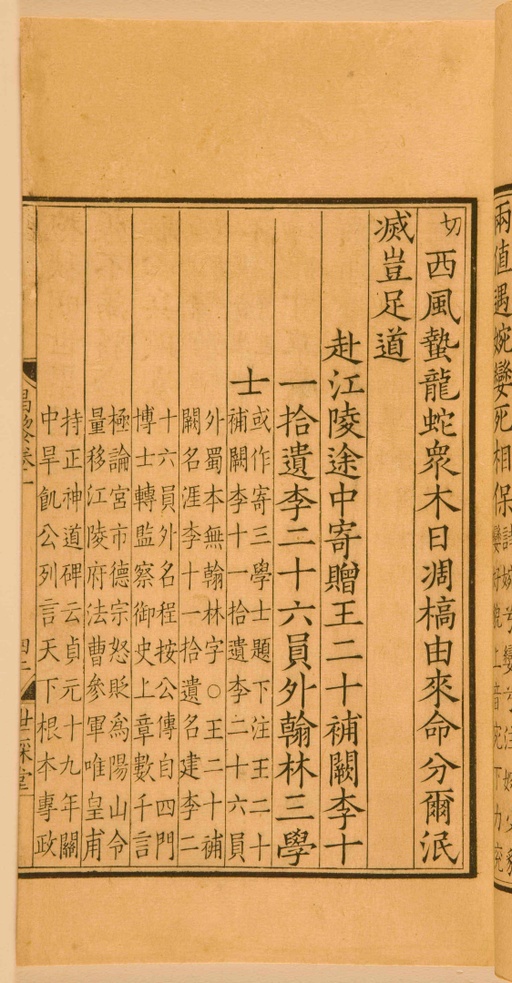 切西風蟄龍蛇衆木日凋槁由來命分爾泯
滅豈足道
赴江陵途中寄贈王二十補闕李十
一拾遺李二十六員外翰林三學
士
或作寄三學士題下注王二十
補闕李十一拾遺李二十六員
外蜀本無翰林字○王二十補
闕名涯李十一拾遺名建李二
十六員外名程按公傳自四門
博士轉監察御史上章數千言
極論宮市德宗怒貶爲陽山令
量移江陵府法曹參軍唯皇甫
持正神道碑云貞元十九年關
中旱飢公列言天下根本專政
世綵堂
兩值遇婉孌死相保